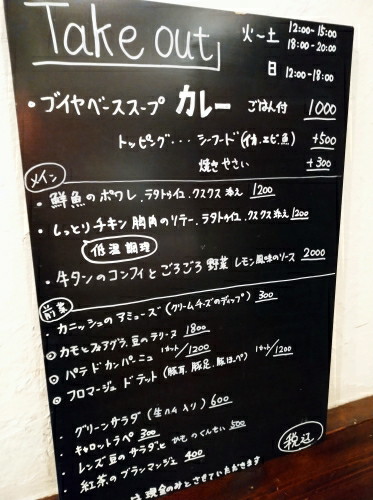 Take out
火〜土 12:00~15:00
18:00~20:00
日 12:00~18:00
・ブイヤベーススープ カレー ごはん付 1000
トッピング... シーフード(イカ、エビ、魚) +500
焼きやさい +300
メイン
・鮮魚のポワレ、ラタトゥイユ、クスクス添え 1200
・しっとりチキン胸肉のソテー、ラタトゥイユ、クスクス添え 1200
低温調理
・牛タンのコンフィとごろごろ野菜 レモン風味のソース 2000
前菜
カニッシュのアミューズ(クリームチーズのディップ) 300
カモとフォアグラ、豆のテリーヌ 1800
パテ ド カンパーニュ 1カット/1200
フロマージュ ド テット(豚耳、豚足、豚ほっぺ) 1カット/1200
・グリーンサラダ(生ハム入り) 600
・キャロットラペ 300
・レンズ豆のサラダと かものくんせい 500
・紅茶のブランマンジェ 400
税込
現金のみとさせていただきます